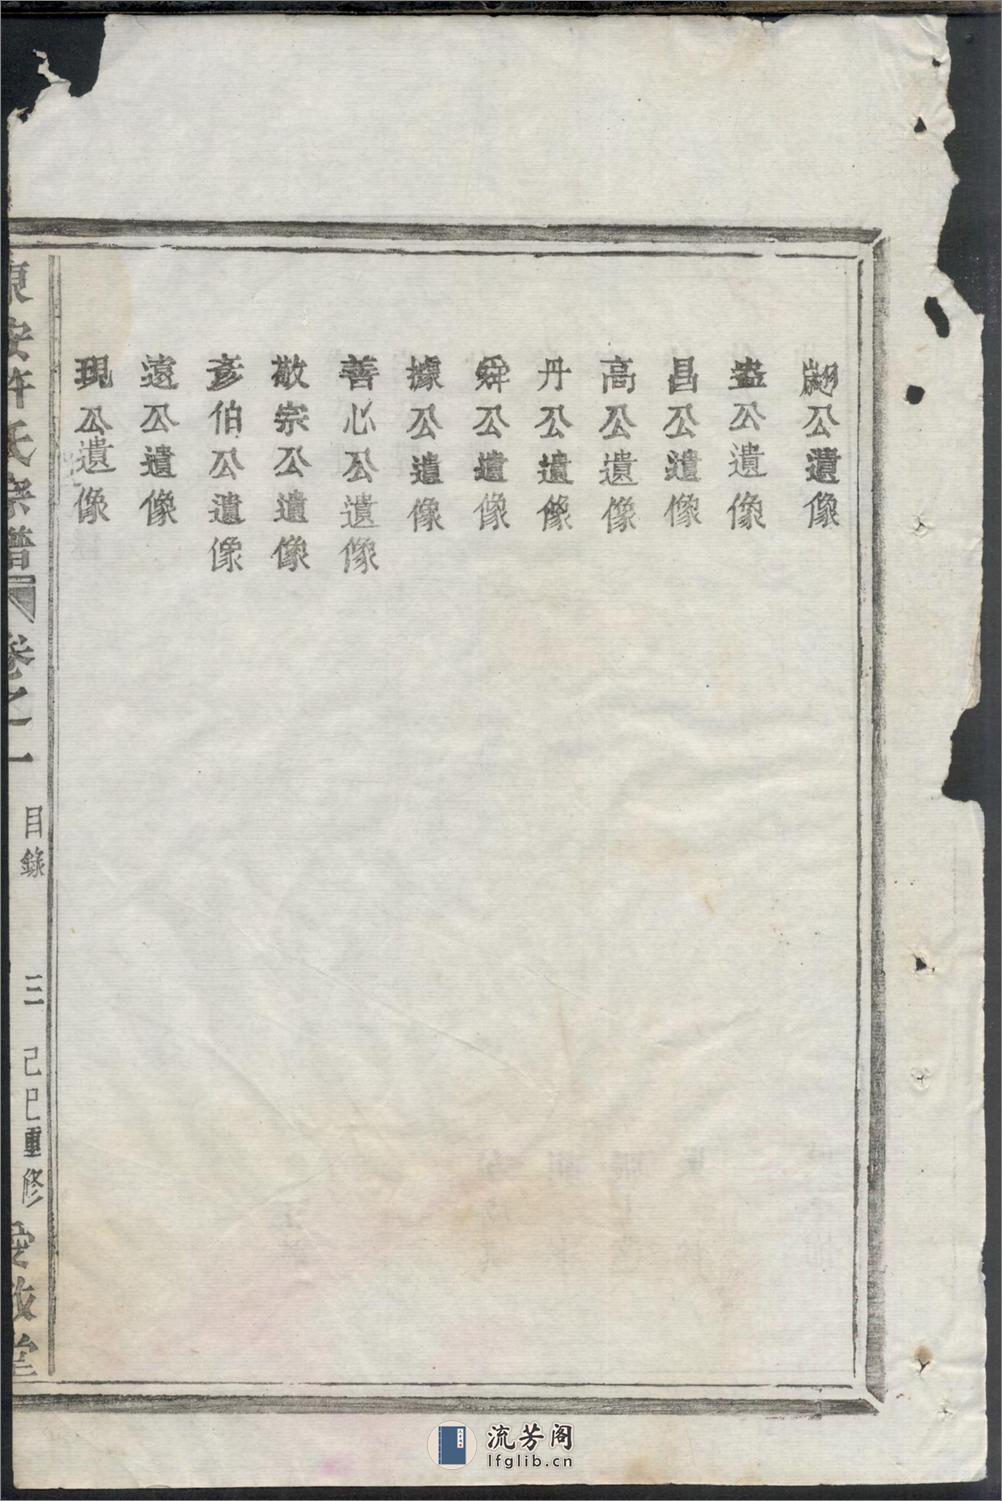 翽公遺像
盎公遺像
昌公遺像
高公遺像
丹公遺像
舜公遺像
據公遺像
善心公遺像
敬宗公遺像
彥伯公遺像
遠公遺像
現公遺像
東安許氏宗譜 卷之一 目錄 三 己巳重修 安政堂
流芳阁
lfglib.cn